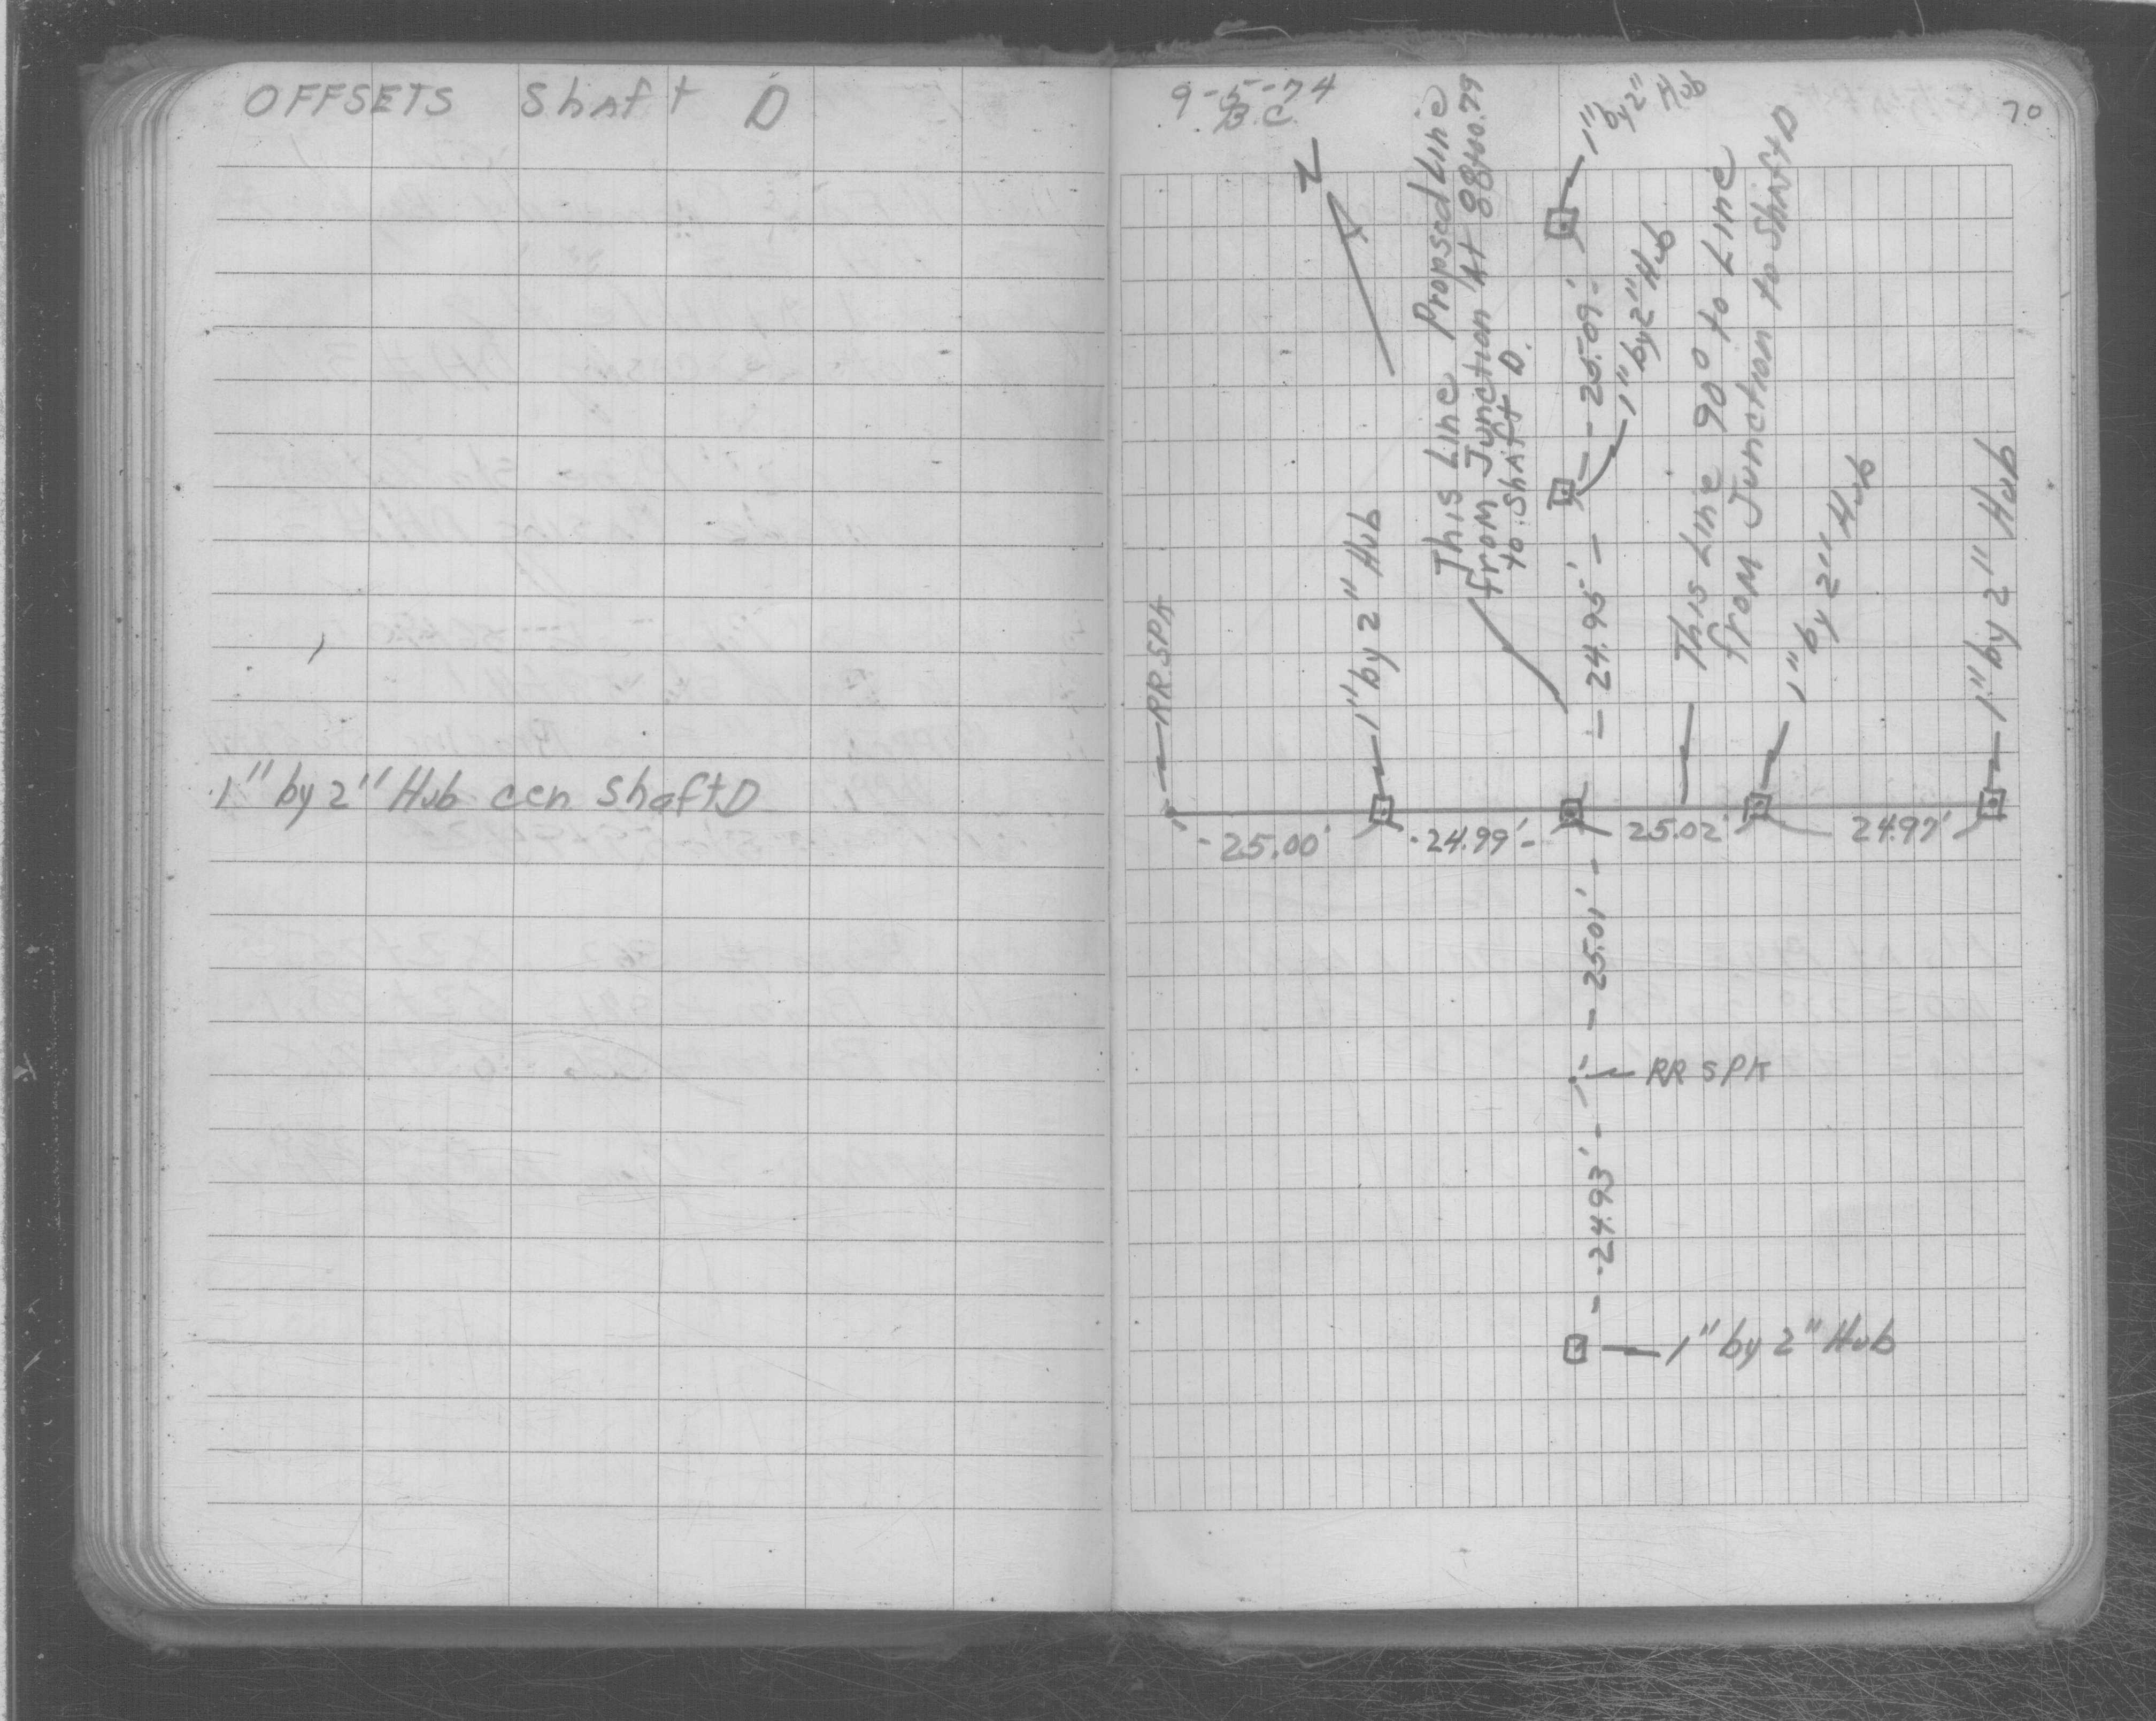 OFFSETS Shaft D
1" by 2" Hub cen Shaft D
9-5-74
B.C.
70
N
This Line Proposed Line
from Junction At 88+00.79
to Shaft D.
1" by 2" Hub
- 25.09' -
1" by 2" Hub
- 24.95' -
This Line 90° to Line
from Junction to Shaft D
RR SPK
1" by 2" Hub
1" by 2" Hub
1" by 2" Hub
- 25.00'
- 24.99' -
25.02'
24.97'
- 25.01' -
RR SPK
- 24.93' -
1" by 2" Hub